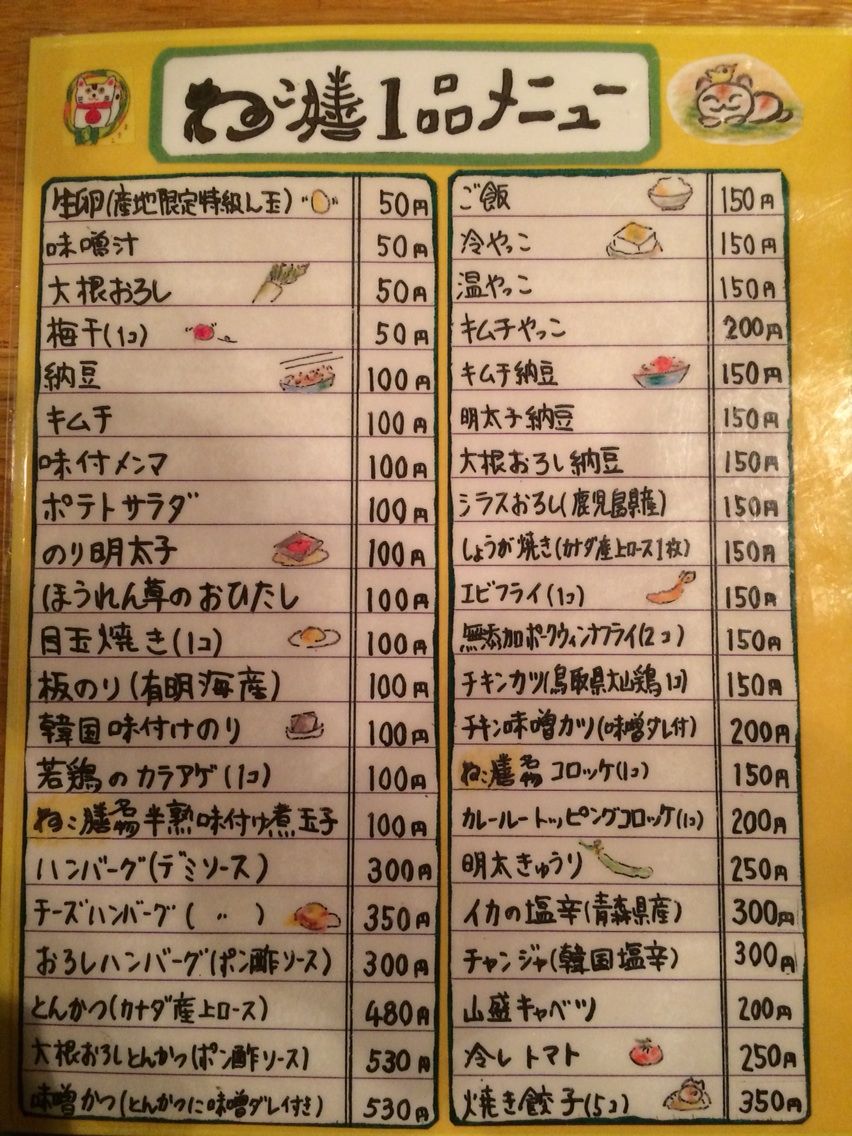 ねこ膳 1品メニュー
生卵(産地限定特級L玉) 50円
味噌汁 50円
大根おろし 50円
梅干(1コ) 50円
納豆 100円
キムチ 100円
味付メンマ 100円
ポテトサラダ 100円
のり明太子 100円
ほうれん草のおひたし 100円
目玉焼き(1コ) 100円
板のり(有明海産) 100円
韓国味付けのり 100円
若鶏のカラアゲ(1コ) 100円
ねこ膳名物半熟味付け煮玉子 100円
ハンバーグ(デミソース) 300円
チーズハンバーグ( 〃 ) 350円
おろしハンバーグ(ポン酢ソース) 300円
とんかつ(カナダ産上ロース) 480円
大根おろしとんかつ(ポン酢ソース) 530円
味噌かつ(とんかつに味噌ダレ付き) 530円
ご飯 150円
冷やっこ 150円
温やっこ 150円
キムチやっこ 200円
キムチ納豆 150円
明太子納豆 150円
大根おろし納豆 150円
シラスおろし(鹿児島県産) 150円
しょうが焼き(カナダ産上ロース1枚) 150円
エビフライ(1コ) 150円
無添加ポークウィンナフライ(2コ) 150円
チキンカツ(鳥取県大山鶏1コ) 150円
チキン味噌カツ(味噌ダレ付) 200円
ねこ膳名物コロッケ(1コ) 150円
カレールートッピングコロッケ(1コ) 200円
明太きゅうり 250円
イカの塩辛(青森県産) 300円
チャンジャ(韓国塩辛) 300円
山盛キャベツ 200円
冷しトマト 250円
焼き餃子(5コ) 350円